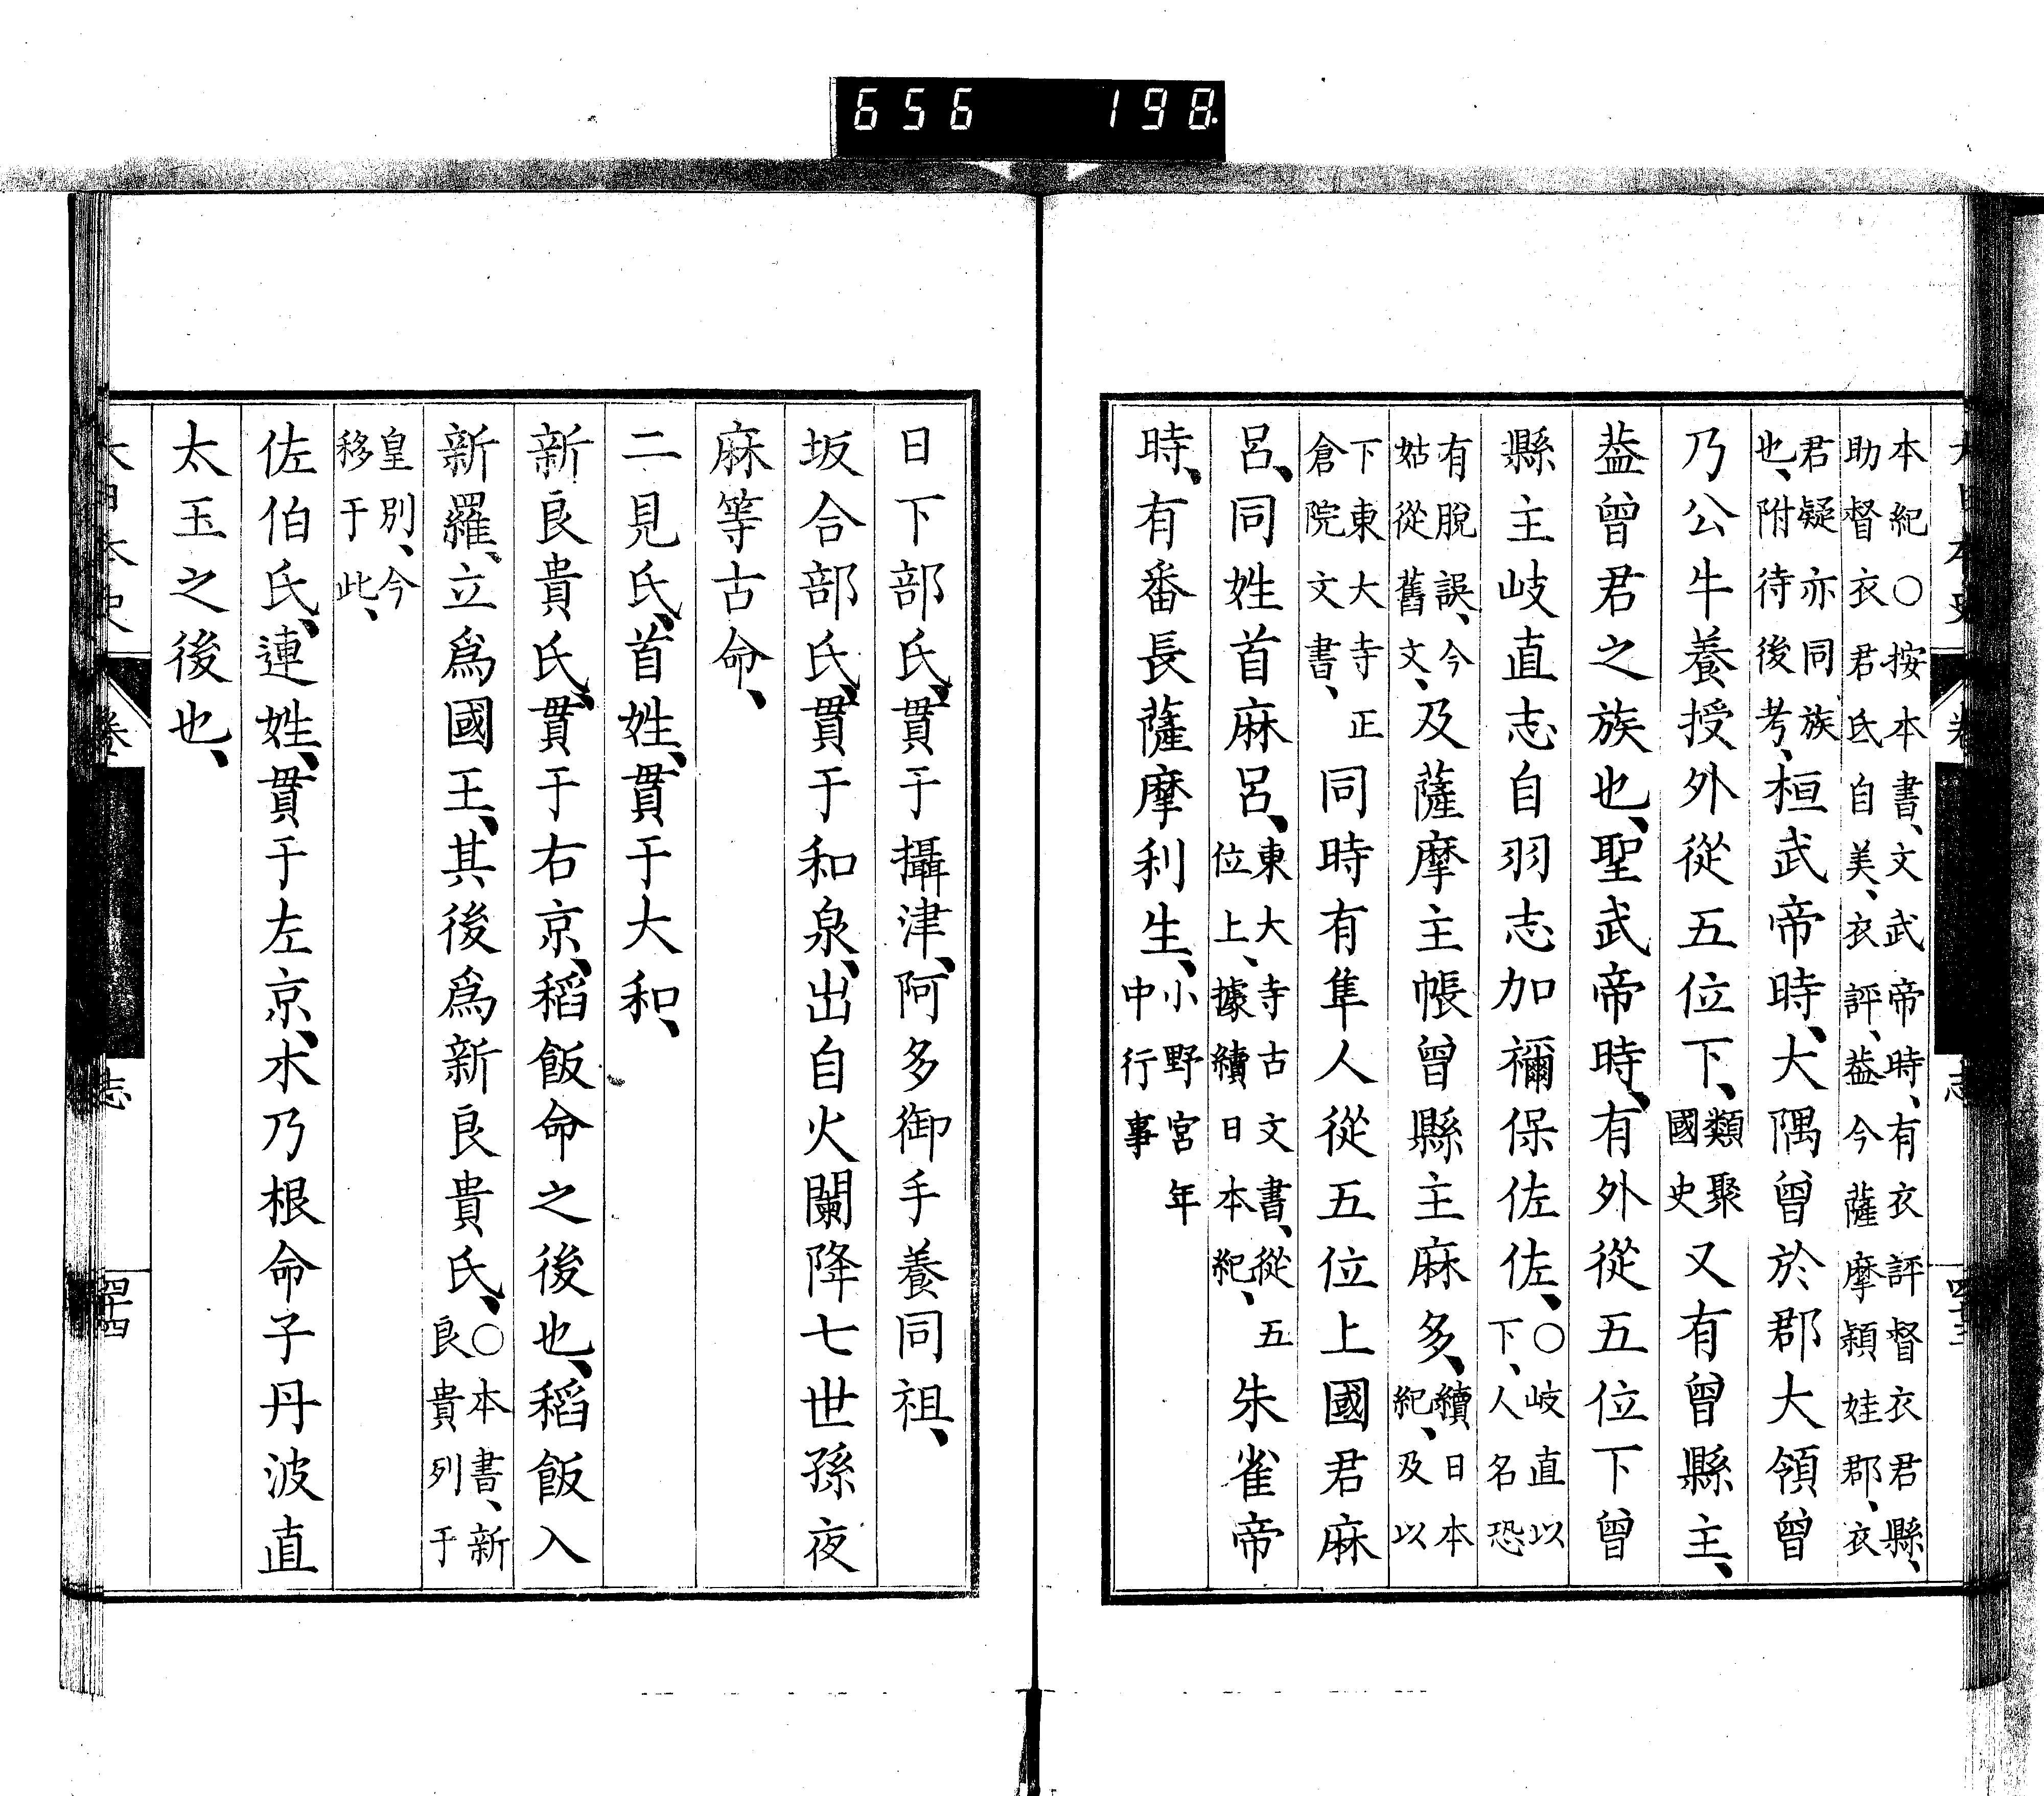 656 198
本紀〇按本書、文武帝時、有衣評督衣君縣、
助督衣君氐自美、衣評、葢今薩摩潁娃郡、衣
君疑亦同族
也、附待後考、桓武帝時、大隅曾於郡大領曾
乃公牛養、授外從五位下、類聚國史又有曾縣主、
葢曾君之族也、聖武帝時、有外從五位下曾
縣主岐直志自羽志加禰保佐佐、〇岐直以下、人名恐
有脫誤、今姑從舊文、及薩摩主帳曾縣主麻多、續日本紀、及以
下東大寺正倉院文書、同時有隼人從五位上國君麻
呂、同姓首麻呂、東大寺古文書、從五位上、據續日本紀、朱雀帝
時、有番長薩摩利生、小野宮年中行事
大日本史 卷 志 四十三
日下部氏、貫于攝津、阿多御手養同祖、
坂合部氏、貫于和泉、出自火闌降七世孫夜
麻等古命、
二見氏、首姓、貫于大和、
新良貴氏、貫于右京、稻飯命之後也、稻飯入
新羅、立爲國王、其後爲新良貴氏、〇本書、新良貴列于
皇別、今移于此、
佐伯氏、連姓、貫于左京、木乃根命子丹波直
太玉之後也、
大日本史 卷 志 四十四